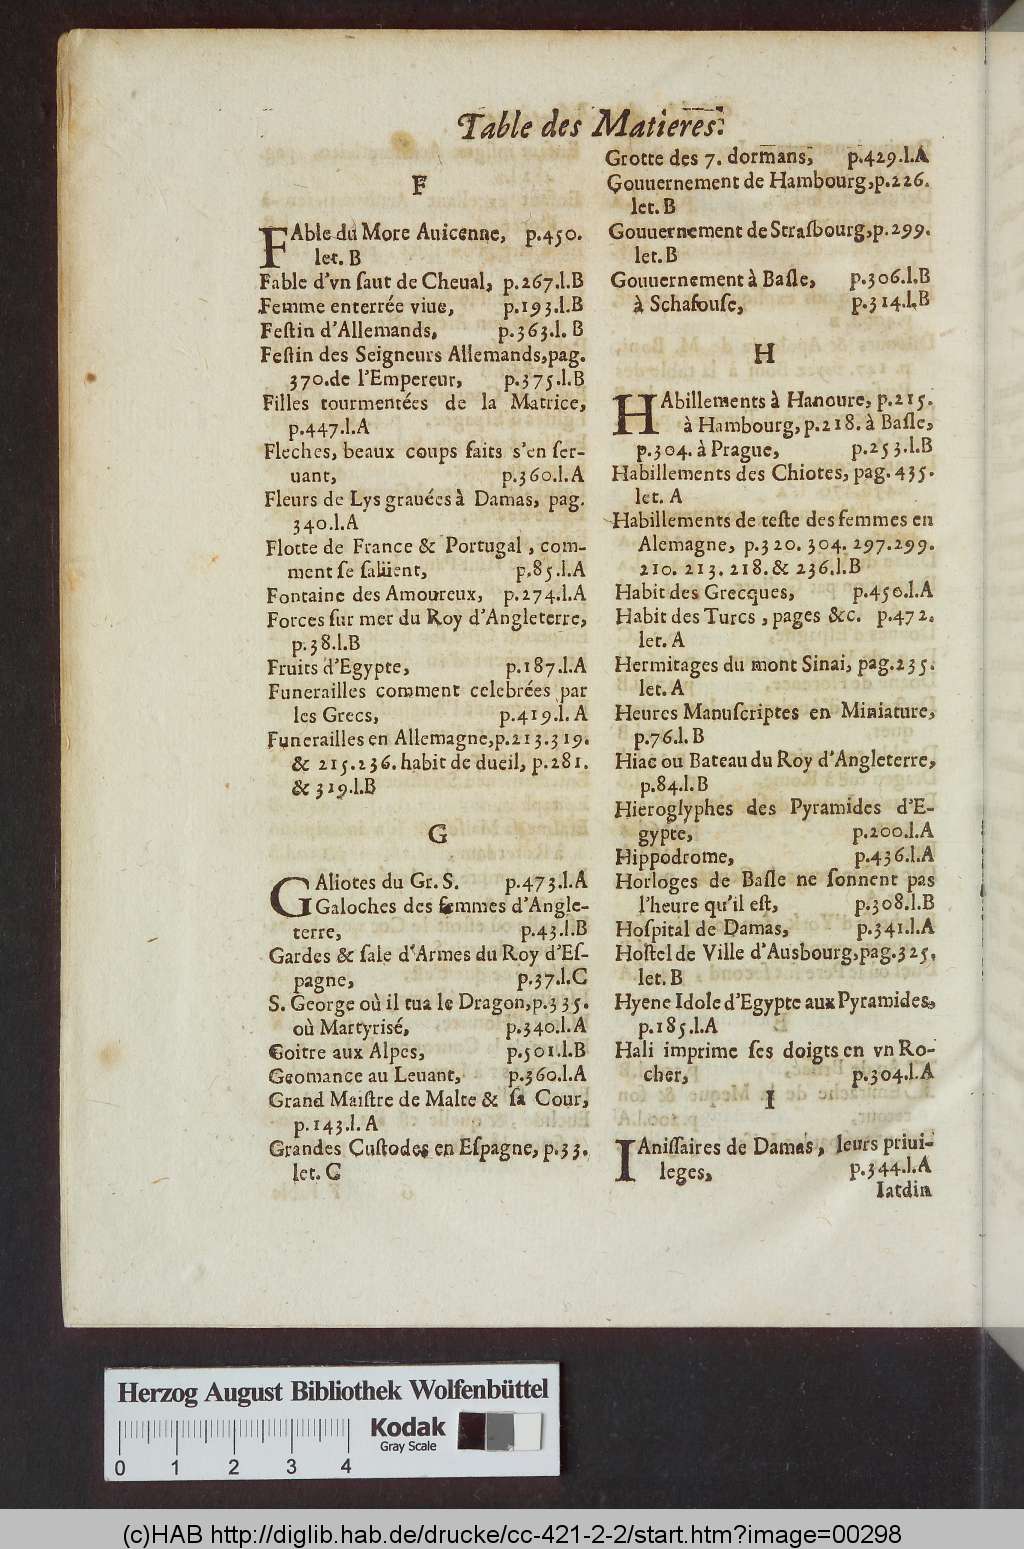 Table des Matieres.
F
FAble du More Auicenne, p.450.
let. B
Fable d'vn ſaut de Cheual, p.267.l.B
Femme enterrée viue, p.193.l.B
Feſtin d'Allemands, p.363.l.B
Feſtin des Seigneurs Allemands,pag.
370.de l'Empereur, p.375.l.B
Filles tourmentées de la Matrice,
p.447.l.A
Fleches, beaux coups faits s'en ſer-
uant, p.360.l.A
Fleurs de Lys grauées à Damas, pag.
340.l.A
Flotte de France & Portugal , com-
ment ſe ſalüent, p.85.l.A
Fontaine des Amoureux, p.274.l.A
Forces ſur mer du Roy d'Angleterre,
p.38.l.B
Fruits d'Egypte, p.187.l.A
Funerailles comment celebrées par
les Grecs, p.419.l.A
Funerailles en Allemagne,p.213.319.
& 215.236. habit de dueil, p.281.
& 319.l.B
G
GAliotes du Gr. S. p.473.l.A
Galoches des femmes d'Angle-
terre, p.43.l.B
Gardes & ſale d'Armes du Roy d'Eſ-
pagne, p.37.l.C
S. George où il tua le Dragon,p.335.
où Martyrisé, p.340.l.A
Goitre aux Alpes, p.501.l.B
Geomance au Leuant, p.360.l.A
Grand Maiſtre de Malte & ſa Cour,
p.143.l.A
Grandes Cuſtodes en Eſpagne, p.33.
let. C
Grotte des 7. dormans, p.429.l.A
Gouuernement de Hambourg,p.226.
let. B
Gouuernement de Straſbourg,p.299.
let. B
Gouuernement à Baſle, p.306.l.B
à Schafouſe, p.314.l.B
H
HAbillements à Hanoure, p.215.
à Hambourg, p.218. à Baſle,
p.304. à Prague, p.253.l.B
Habillements des Chiotes, pag. 435.
let. A
Habillements de teſte des femmes en
Alemagne, p.320. 304. 297.299.
210. 213. 218. & 236.l.B
Habit des Grecques, p.450.l.A
Habit des Turcs , pages &c. p.472.
let. A
Hermitages du mont Sinai, pag.235.
let. A
Heures Manuſcriptes en Miniature,
p.76.l.B
Hiac ou Bateau du Roy d'Angleterre,
p.84.l.B
Hieroglyphes des Pyramides d'E-
gypte, p.200.l.A
Hippodrome, p.436.l.A
Horloges de Baſle ne ſonnent pas
l'heure qu'il eſt, p.308.l.B
Hoſpital de Damas, p.341.l.A
Hoſtel de Ville d'Ausbourg,pag.325.
let. B
Hyene Idole d'Egypte aux Pyramides,
p.185.l.A
Hali imprime ſes doigts en vn Ro-
cher, p.304.l.A
I
IAniſſaires de Damas, leurs priui-
leges, p.344.l.A
Iatdin
Herzog August Bibliothek Wolfenbüttel
Kodak
Gray Scale
0 1 2 3 4
(c)HAB http://diglib.hab.de/drucke/cc-421-2-2/start.htm?image=00298